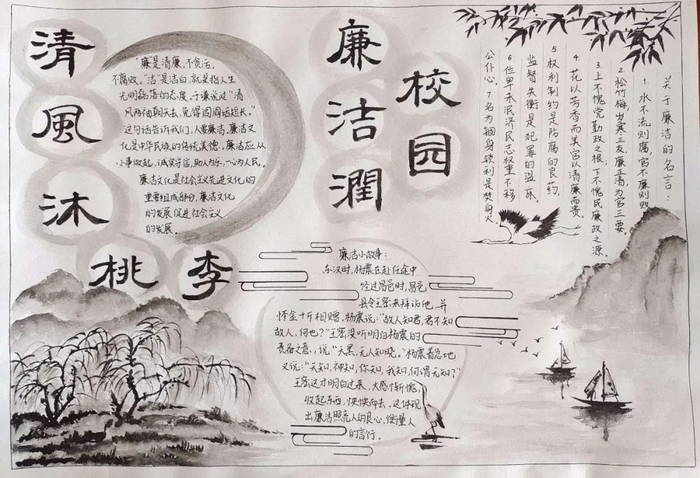 清
風
沐
桃李
廉
洁
潤
校
园
“廉是清廉,不贪污,
不腐败。“洁”是洁白,就是指人生
光明磊落的态度。于谦说过“清
风两袖朝天去,免得闾阎话短长。”
这句话告诉我们,人要廉洁,廉洁文
化是中华民族的传统美德,廉洁应从
小事做起,诚实守信,助人为乐,一心为人民。
廉洁文化是社会主义先进文化的
重要组成部分,廉洁文化
的发展促进社会主义
的发展。
关于廉洁的名言:
1 水不流则腐,官不廉则败
2 松竹梅岁寒三友,廉正清为官三要
3 上不愧党勤政之根;下不愧民廉政之源
4 花以芳香而美官以清廉而贵
5 权利制约是防腐的良药,
监督失衡是犯罪的温床
6 位卑未泯济民志权重不移
公仆心
7 名为锢身锁利是焚身火
廉洁小故事:
东汉时,杨震在赴任途中
经过昌邑时,昌邑
县令王密来拜访他,并
怀金十斤相赠,杨震说:“故人知君,君不知
故人,何也?”王密没听明白杨震的
责备之意,说“天黑,无人知晓。”杨震
又说:“天知,神知,你知,我知,何谓无知?”
王密这才明白过来,大感惭愧,
收起东西,怏怏而去,这体现
出廉洁照亮人的良心,衡量人
的言行。